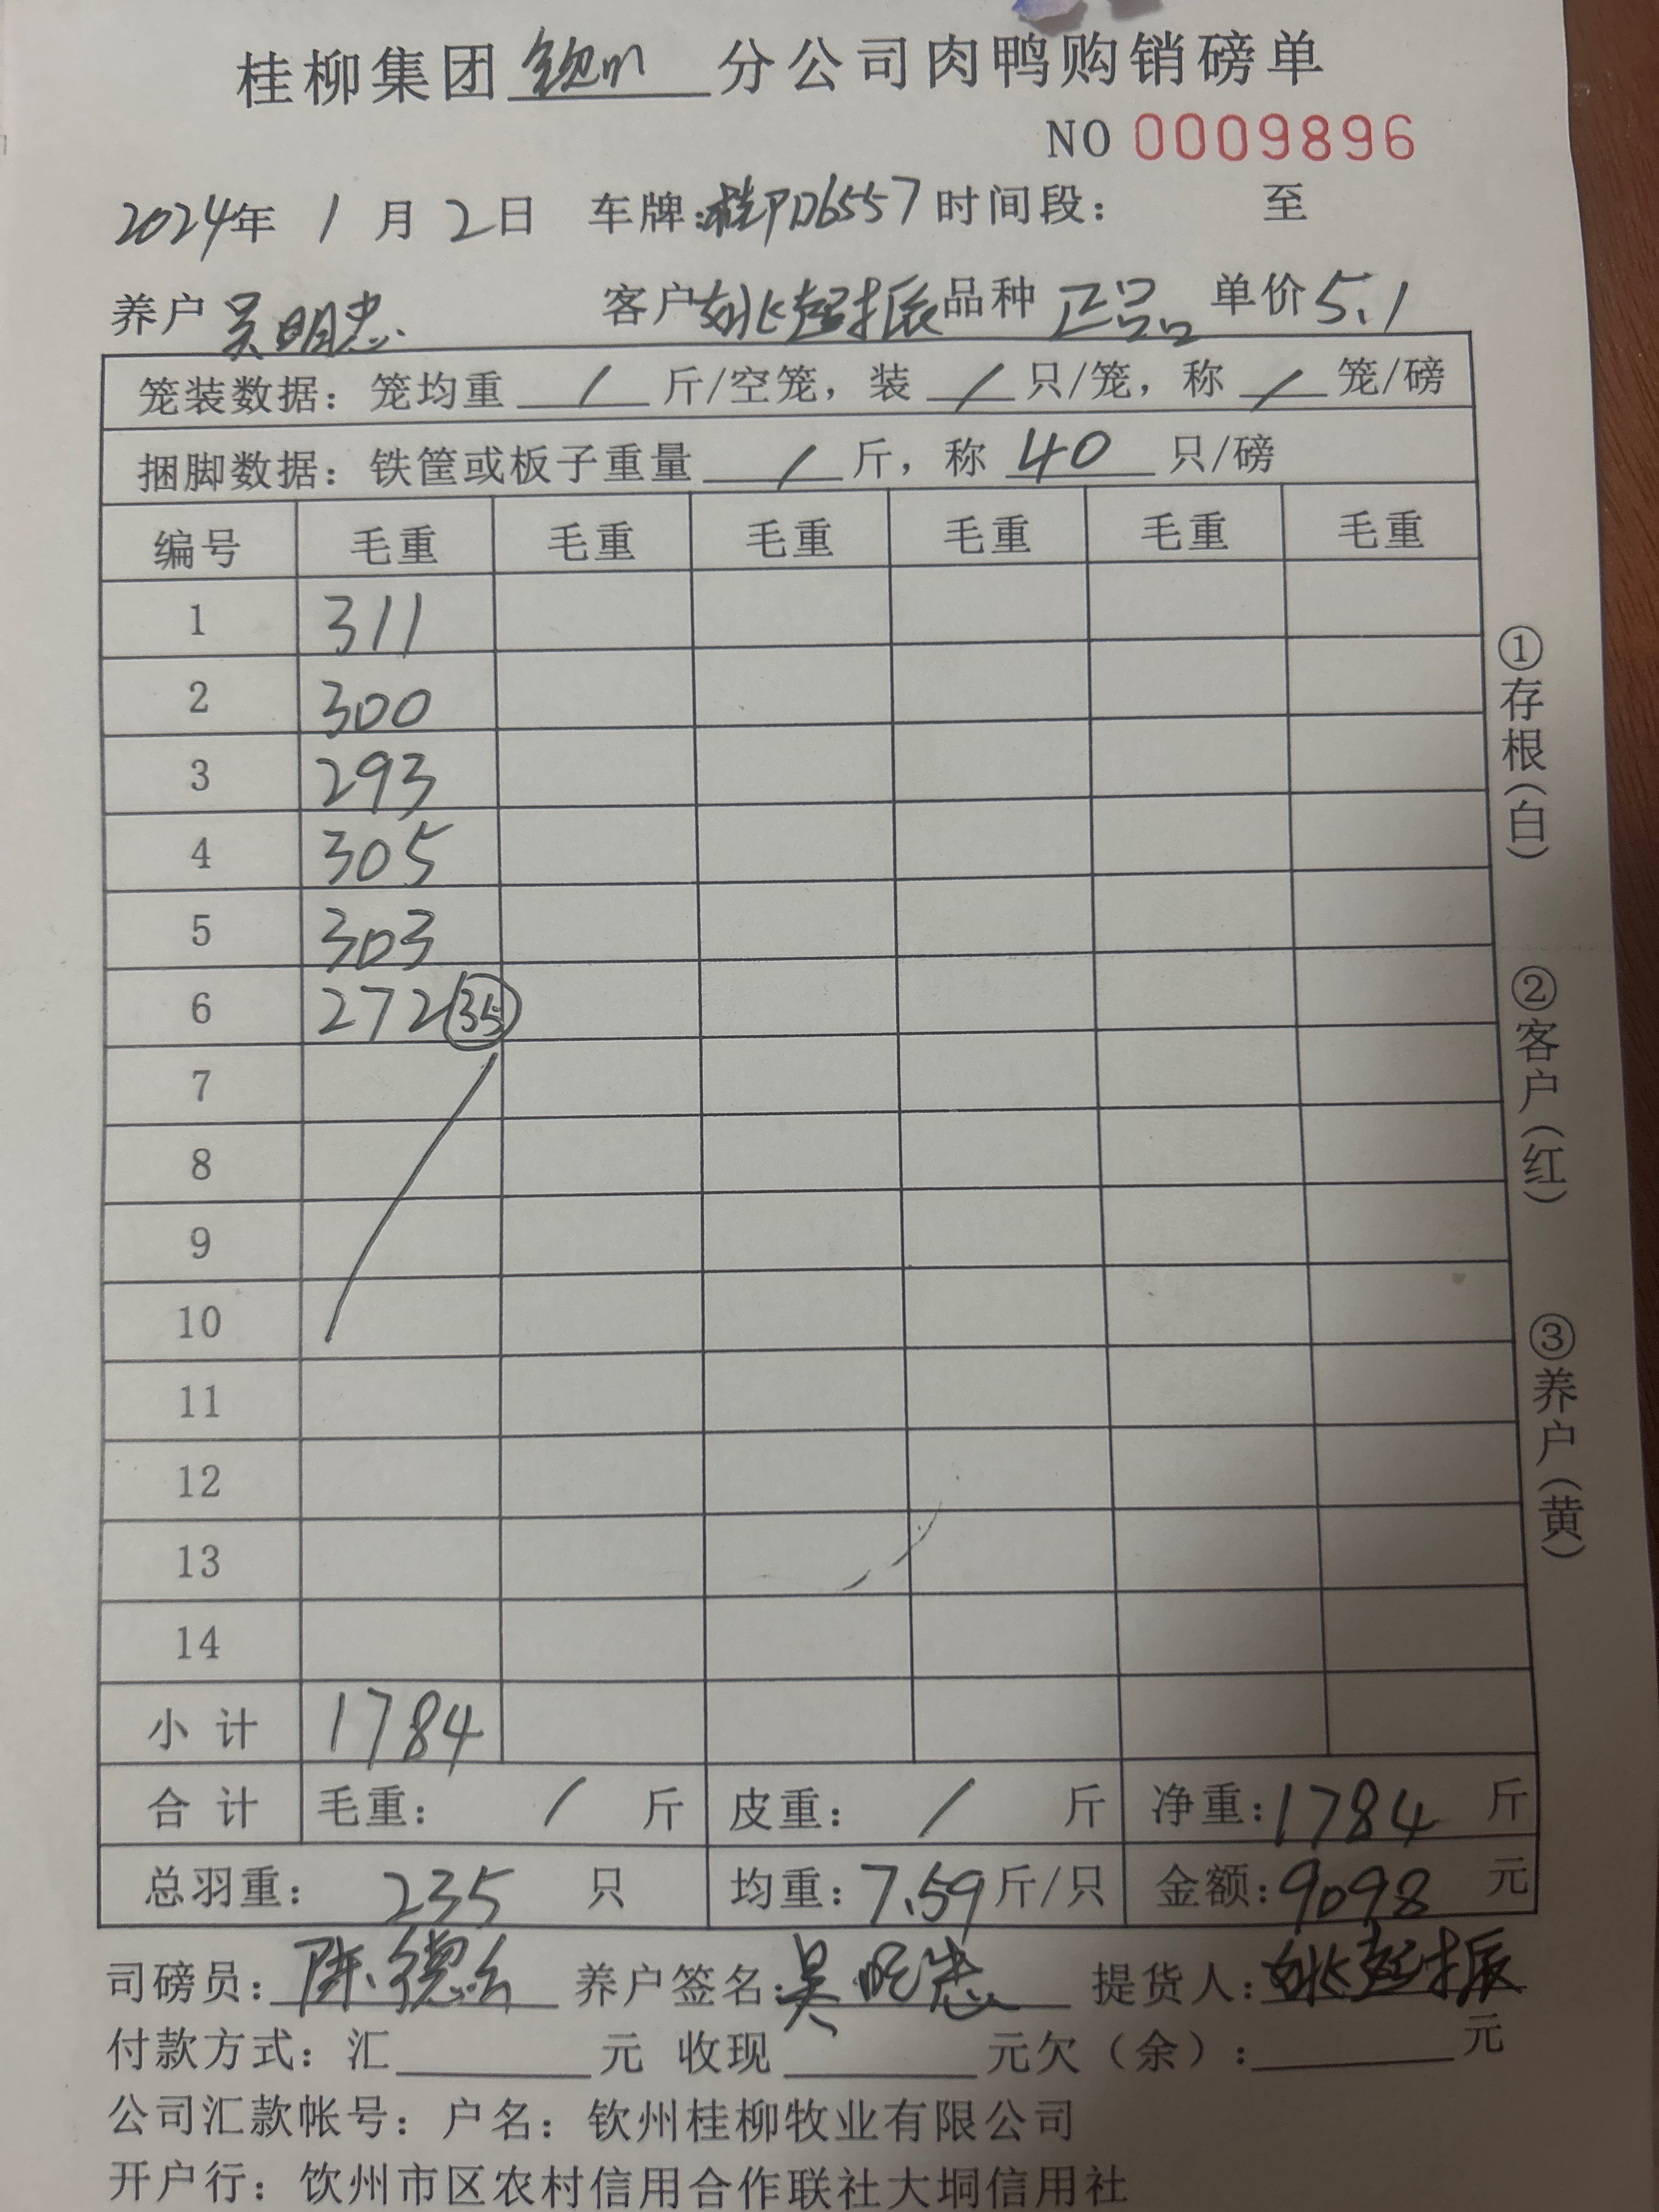 桂柳集团钦州分公司肉鸭购销磅单
NO 0009896
2024年 1月 2日 车牌:桂PD6557 时间段: 至
养户 吴明忠 客户 姚超振 品种 正品 单价 5.1
笼装数据:笼均重 / 斤/空笼,装 / 只/笼,称 / 笼/磅
捆脚数据:铁筐或板子重量 / 斤,称 40 只/磅
编号 毛重 毛重 毛重 毛重 毛重 毛重
1 311
2 300
3 293
4 305
5 303
6 272 35
7
8
9
10
11
12
13
14
小计 1784
合计 毛重: / 斤 皮重: / 斤 净重:1784 斤
总羽重: 235 只 均重:7.59斤/只 金额:9098 元
司磅员:陈德 养户签名:吴明忠 提货人:姚超振
付款方式:汇 元 收现 元欠(余): 元
公司汇款帐号:户名:钦州桂柳牧业有限公司
开户行:钦州市区农村信用合作联社大垌信用社
①存根(白)
②客户(红)
③养户(黄)